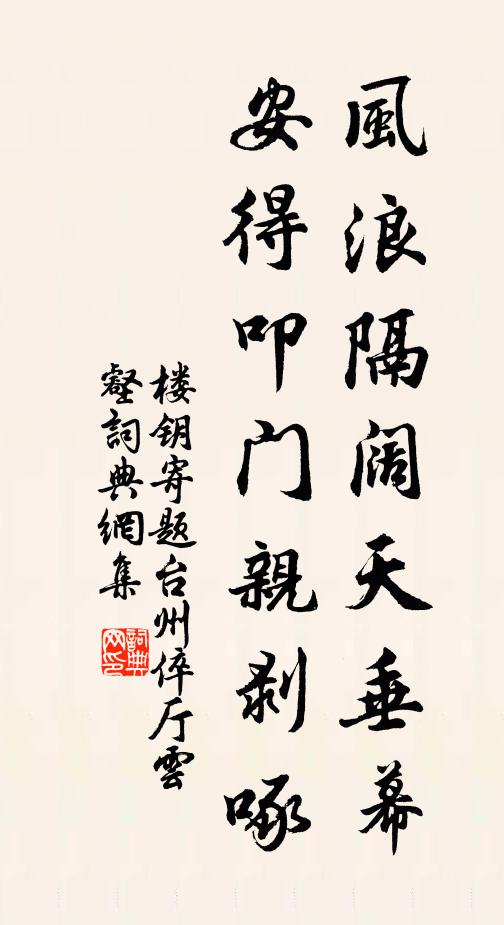 風浪隔阔天垂幕
安得叩门親剥啄
楼钥寄题台州倅厅雲
壑詞典網集
詞典网印